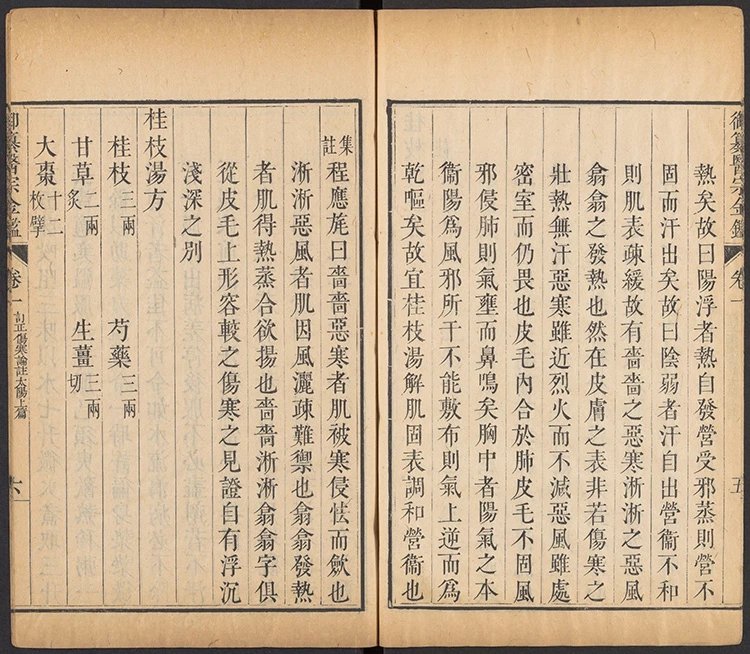 御纂醫宗金鑑 卷一 五
熱矣故曰陽浮者熱自發營受邪蒸則營不
固而汗出矣故曰陰弱者汗自出營衞不和
則肌表疎緩故有嗇嗇之惡寒淅淅之惡風
翕翕之發熱也然在皮膚之表非若傷寒之
壯熱無汗惡寒雖近烈火而不減惡風雖處
密室而仍畏也皮毛內合於肺皮毛不固風
邪侵肺則氣壅而鼻鳴矣胸中者陽氣之本
衞陽爲風邪所干不能敷布則氣上逆而爲
乾嘔矣故宜桂枝湯解肌固表調和營衞也
集註 程應旄曰嗇嗇惡寒者肌被寒侵怯而歛也
淅淅惡風者肌因風灑疎難禦也翕翕發熱
者肌得熱蒸合欲揚也嗇嗇淅淅翕翕字俱
從皮毛上形容較之傷寒之見證自有浮沉
淺深之別
桂枝湯方
桂枝三兩 芍藥三兩
甘草二兩炙 生薑三兩切
大棗十二枚擘
御纂醫宗金鑑 卷一 訂正傷寒論註太陽上篇 六